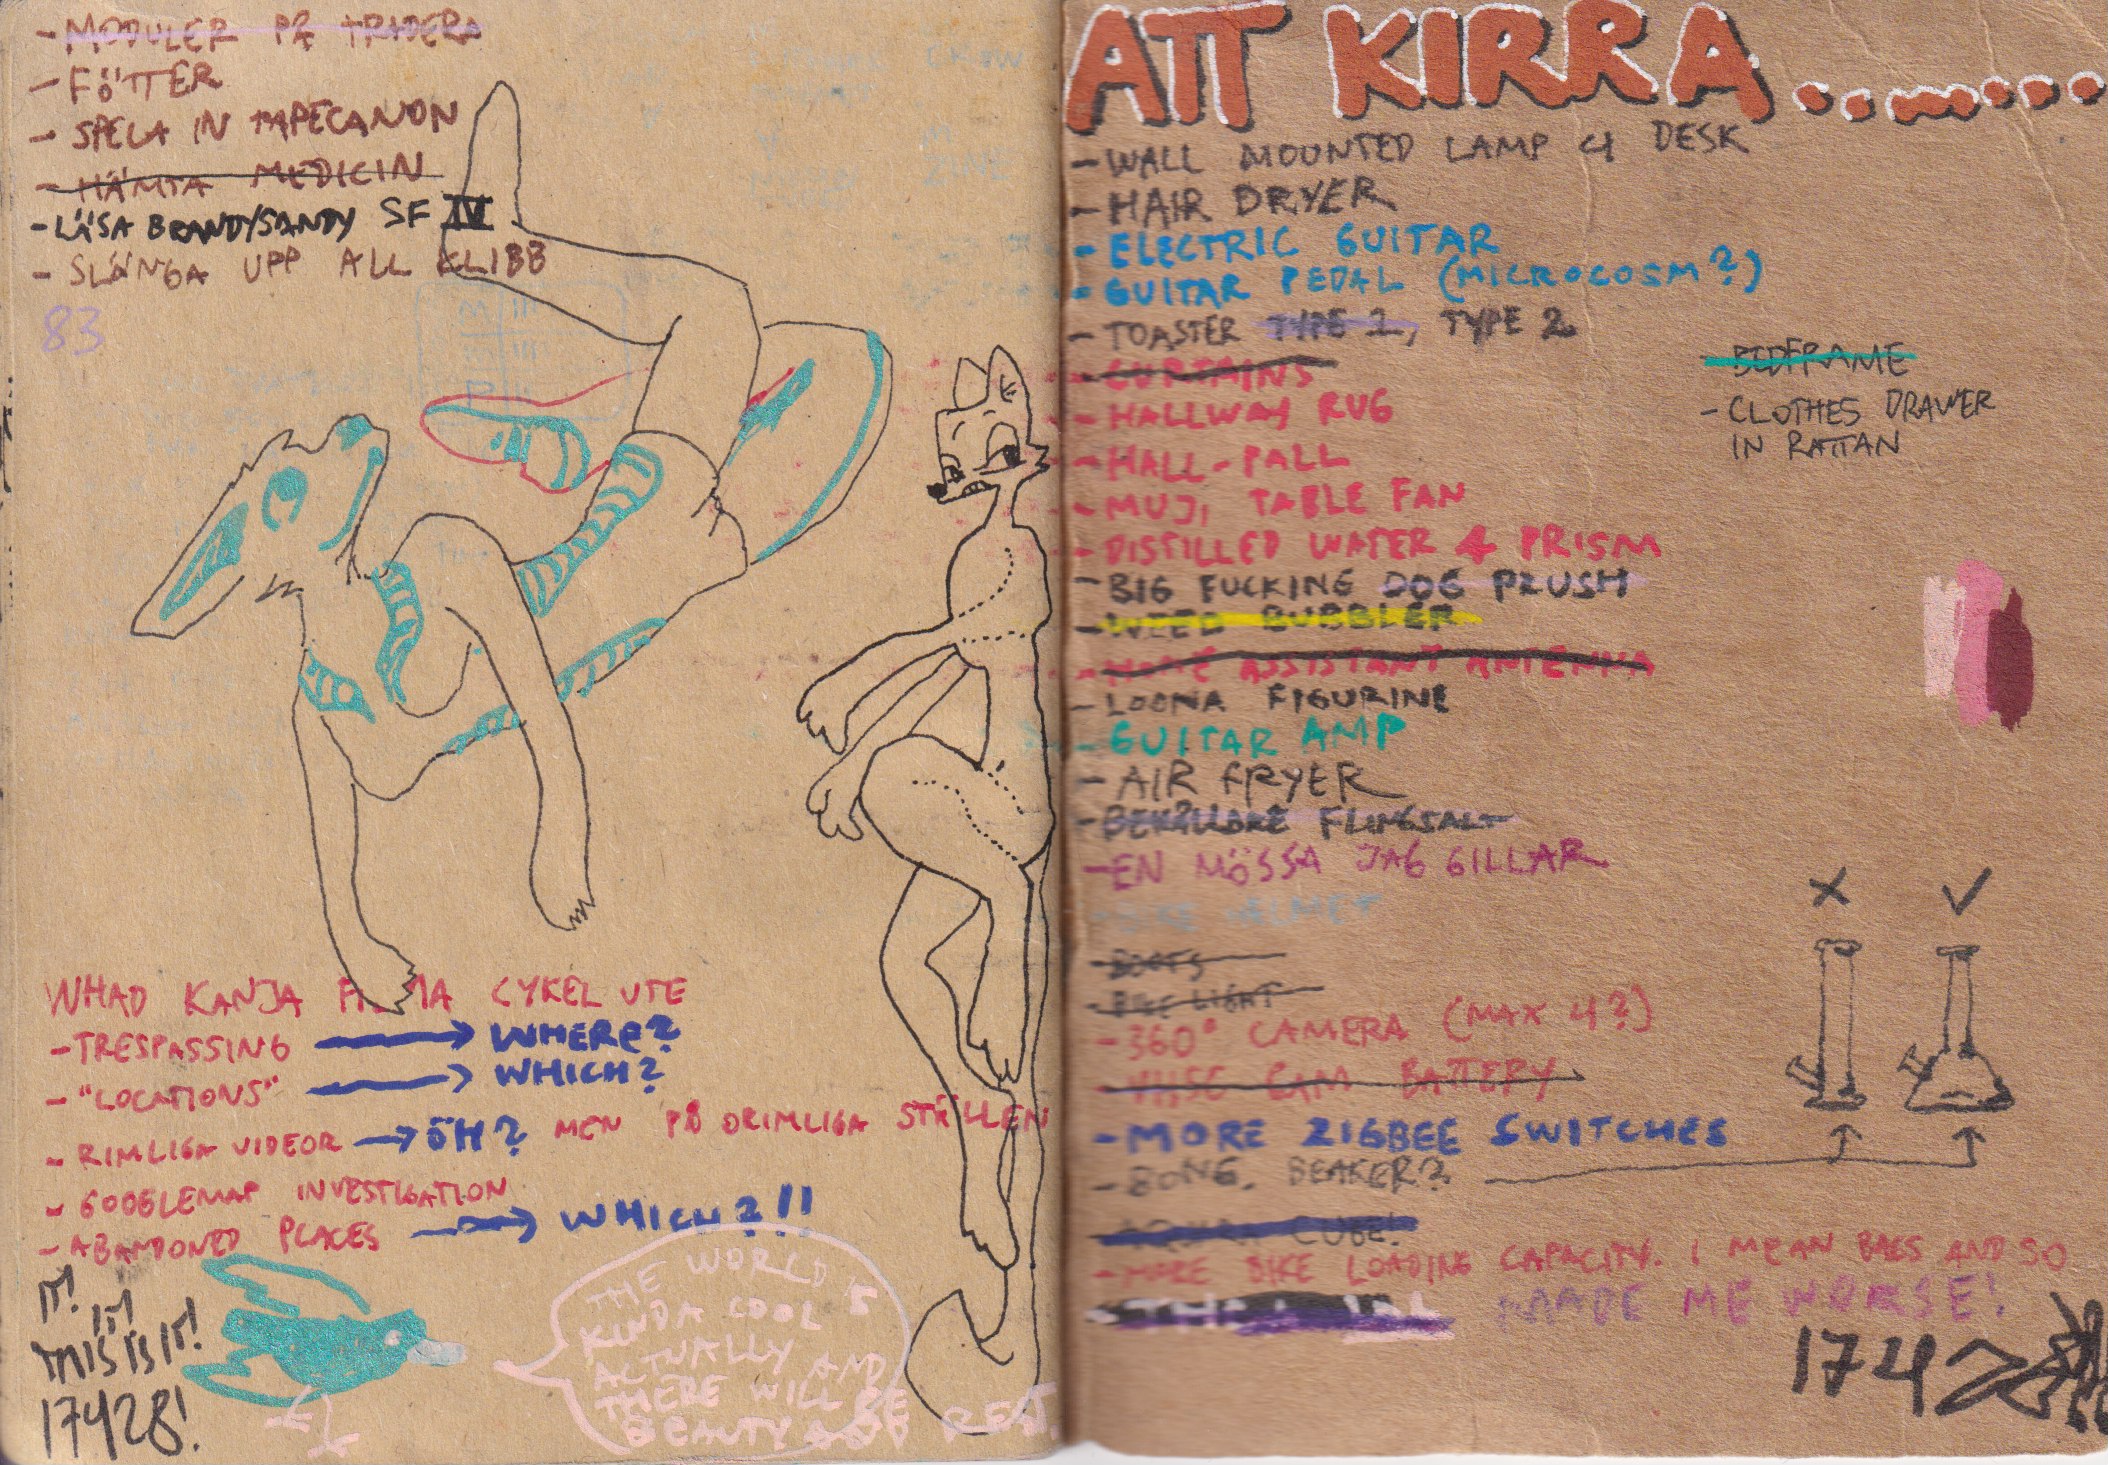 - MODULER PÅ TRADERA
- FÖTTER
- SPELA IN TAPECANON
- HÄMTA MEDICIN
- LÄSA BRANDY/SANDY SF IV
- SLÄNGA UPP ALL KLIBB
83
WHAD KANJA FILMA CYKEL UTE
- TRESPASSING → WHERE?
- "LOCATIONS" → WHICH?
- RIMLIGA VIDEOR → ÖH? MEN PÅ ORIMLIGA STÄLLEN
- GOOGLEMAP INVESTIGATION
- ABANDONED PLACES → WHICH?!!
IT!
IT!
THIS IS IT!
17428!
THE WORLD IS
KINDA COOL
ACTUALLY AND
THERE WILL BE
BEAUTY AND REST.
ATT KIRRA
- WALL MOUNTED LAMP 4 DESK
- HAIR DRYER
- ELECTRIC GUITAR
- GUITAR PEDAL (MICROCOSM?)
- TOASTER TYPE 1, TYPE 2
- CURTAINS
- HALLWAY RUG
- HALL-PALL
- MUJI TABLE FAN
- DISTILLED WATER 4 PRISM
- BIG FUCKING DOG PLUSH
- WEED BUBBLER
- HOME ASSISTANT ANTENNA
- LOONA FIGURINE
- GUITAR AMP
- AIR FRYER
- BEKÄLLARE FLINGSALT
- EN MÖSSA JAG GILLAR
- BIKE HELMET
- BOOTS
- BIKE LIGHT
- 360° CAMERA (MAX 4?)
CAM BATTERY
- MORE ZIGBEE SWITCHES
- BONG. BEAKER?
CUBE!
- MORE BIKE LOADING CAPACITY. I MEAN BAGS AND SO
MADE ME WORSE!
1742
- BEDFRAME
- CLOTHES DRAWER
IN RATTAN